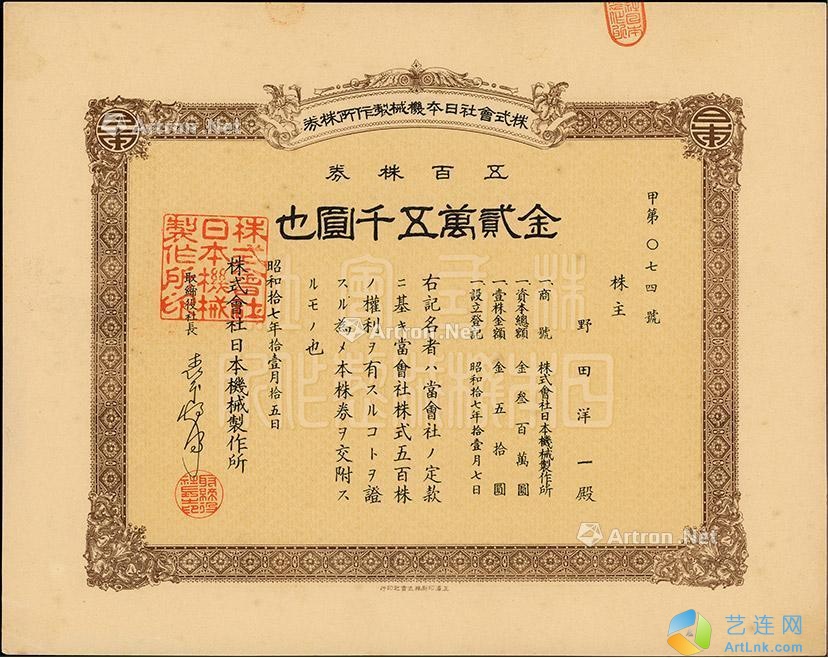 株式會社日本機械製作所株券
五百株券
金貳萬五千圓也
甲第〇七四號
株主
野田洋一殿
一商號 株式會社日本機械製作所
一資本總額 金叁百萬圓
一壹株金額 金五拾圓
一設立登記 昭和拾七年拾壹月七日
右記名者ハ當會社ノ定款
ニ基キ當會社株式五百株
ノ權利ヲ有スルコトヲ證
スル為メ本株券ヲ交附ス
ルモノ也
昭和拾七年拾壹月拾五日
株式會社日本機械製作所
取締役社長
株式會社
日本機械
製作所印
Artron.Net
Artron.Net
Artron.Net
Artron.Net
艺连网
ArtLnk.com